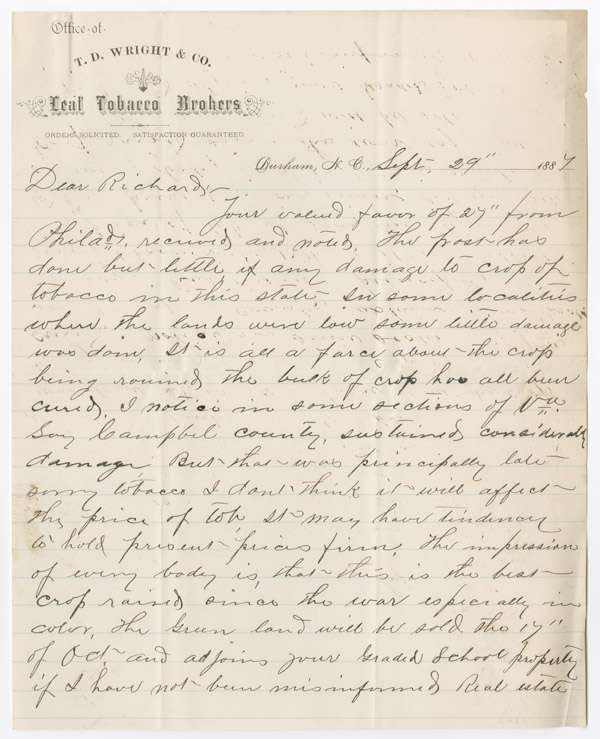 Office of
T. D. WRIGHT & CO.
Leaf Tobacco Brokers
ORDERS SOLICITED. SATISFACTION GUARANTEED.
Durham, N. C., Sept. 29" 1887
Dear Richard,-
Your valued favor of 27" from
Philad. received and noted. The frost has
done but little if any damage to crop of
tobacco in this state. In some localities
where the lands were low some little damage
was done. It is all a farce about the crop
being rouined, the bulk of crop has all been
cured. I notice in some sections of Va.
Say Campbel county, sustained considerable
damage But that was principally late
sorry tobacco I dont think it will affect
the price of tob. It may have tindency
to hold present prices firm. The impression
of every body is, that this is the best
crop raised since the war especially in
color, The Green land will be sold the 17"
of Oct. and adjoins your Graded School property
if I have not been misinformed Real estate